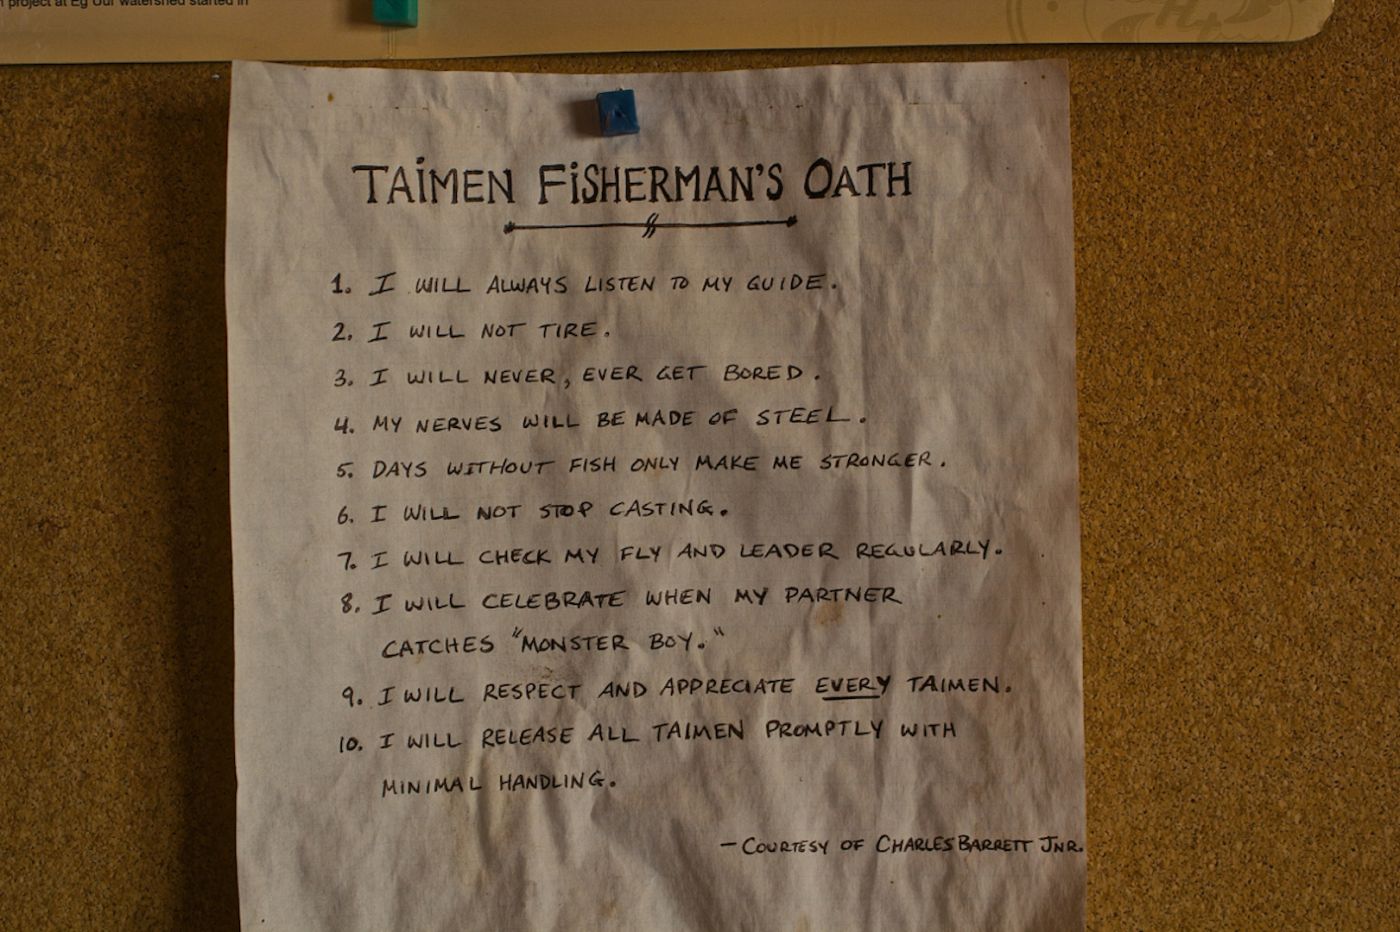 project at Eg Uur watershed started in
TAiMEN FiSHERMAN'S OATH
1. I WILL ALWAYS LISTEN TO MY GUIDE.
2. I WILL NOT TIRE.
3. I WILL NEVER, EVER GET BORED.
4. MY NERVES WILL BE MADE OF STEEL.
5. DAYS WITHOUT FISH ONLY MAKE ME STRONGER.
6. I WILL NOT STOP CASTING.
7. I WILL CHECK MY FLY AND LEADER REGULARLY.
8. I WILL CELEBRATE WHEN MY PARTNER
CATCHES "MONSTER BOY."
9. I WILL RESPECT AND APPRECIATE EVERY TAIMEN.
10. I WILL RELEASE ALL TAIMEN PROMPTLY WITH
MINIMAL HANDLING.
– COURTESY OF CHARLES BARRETT JNR.